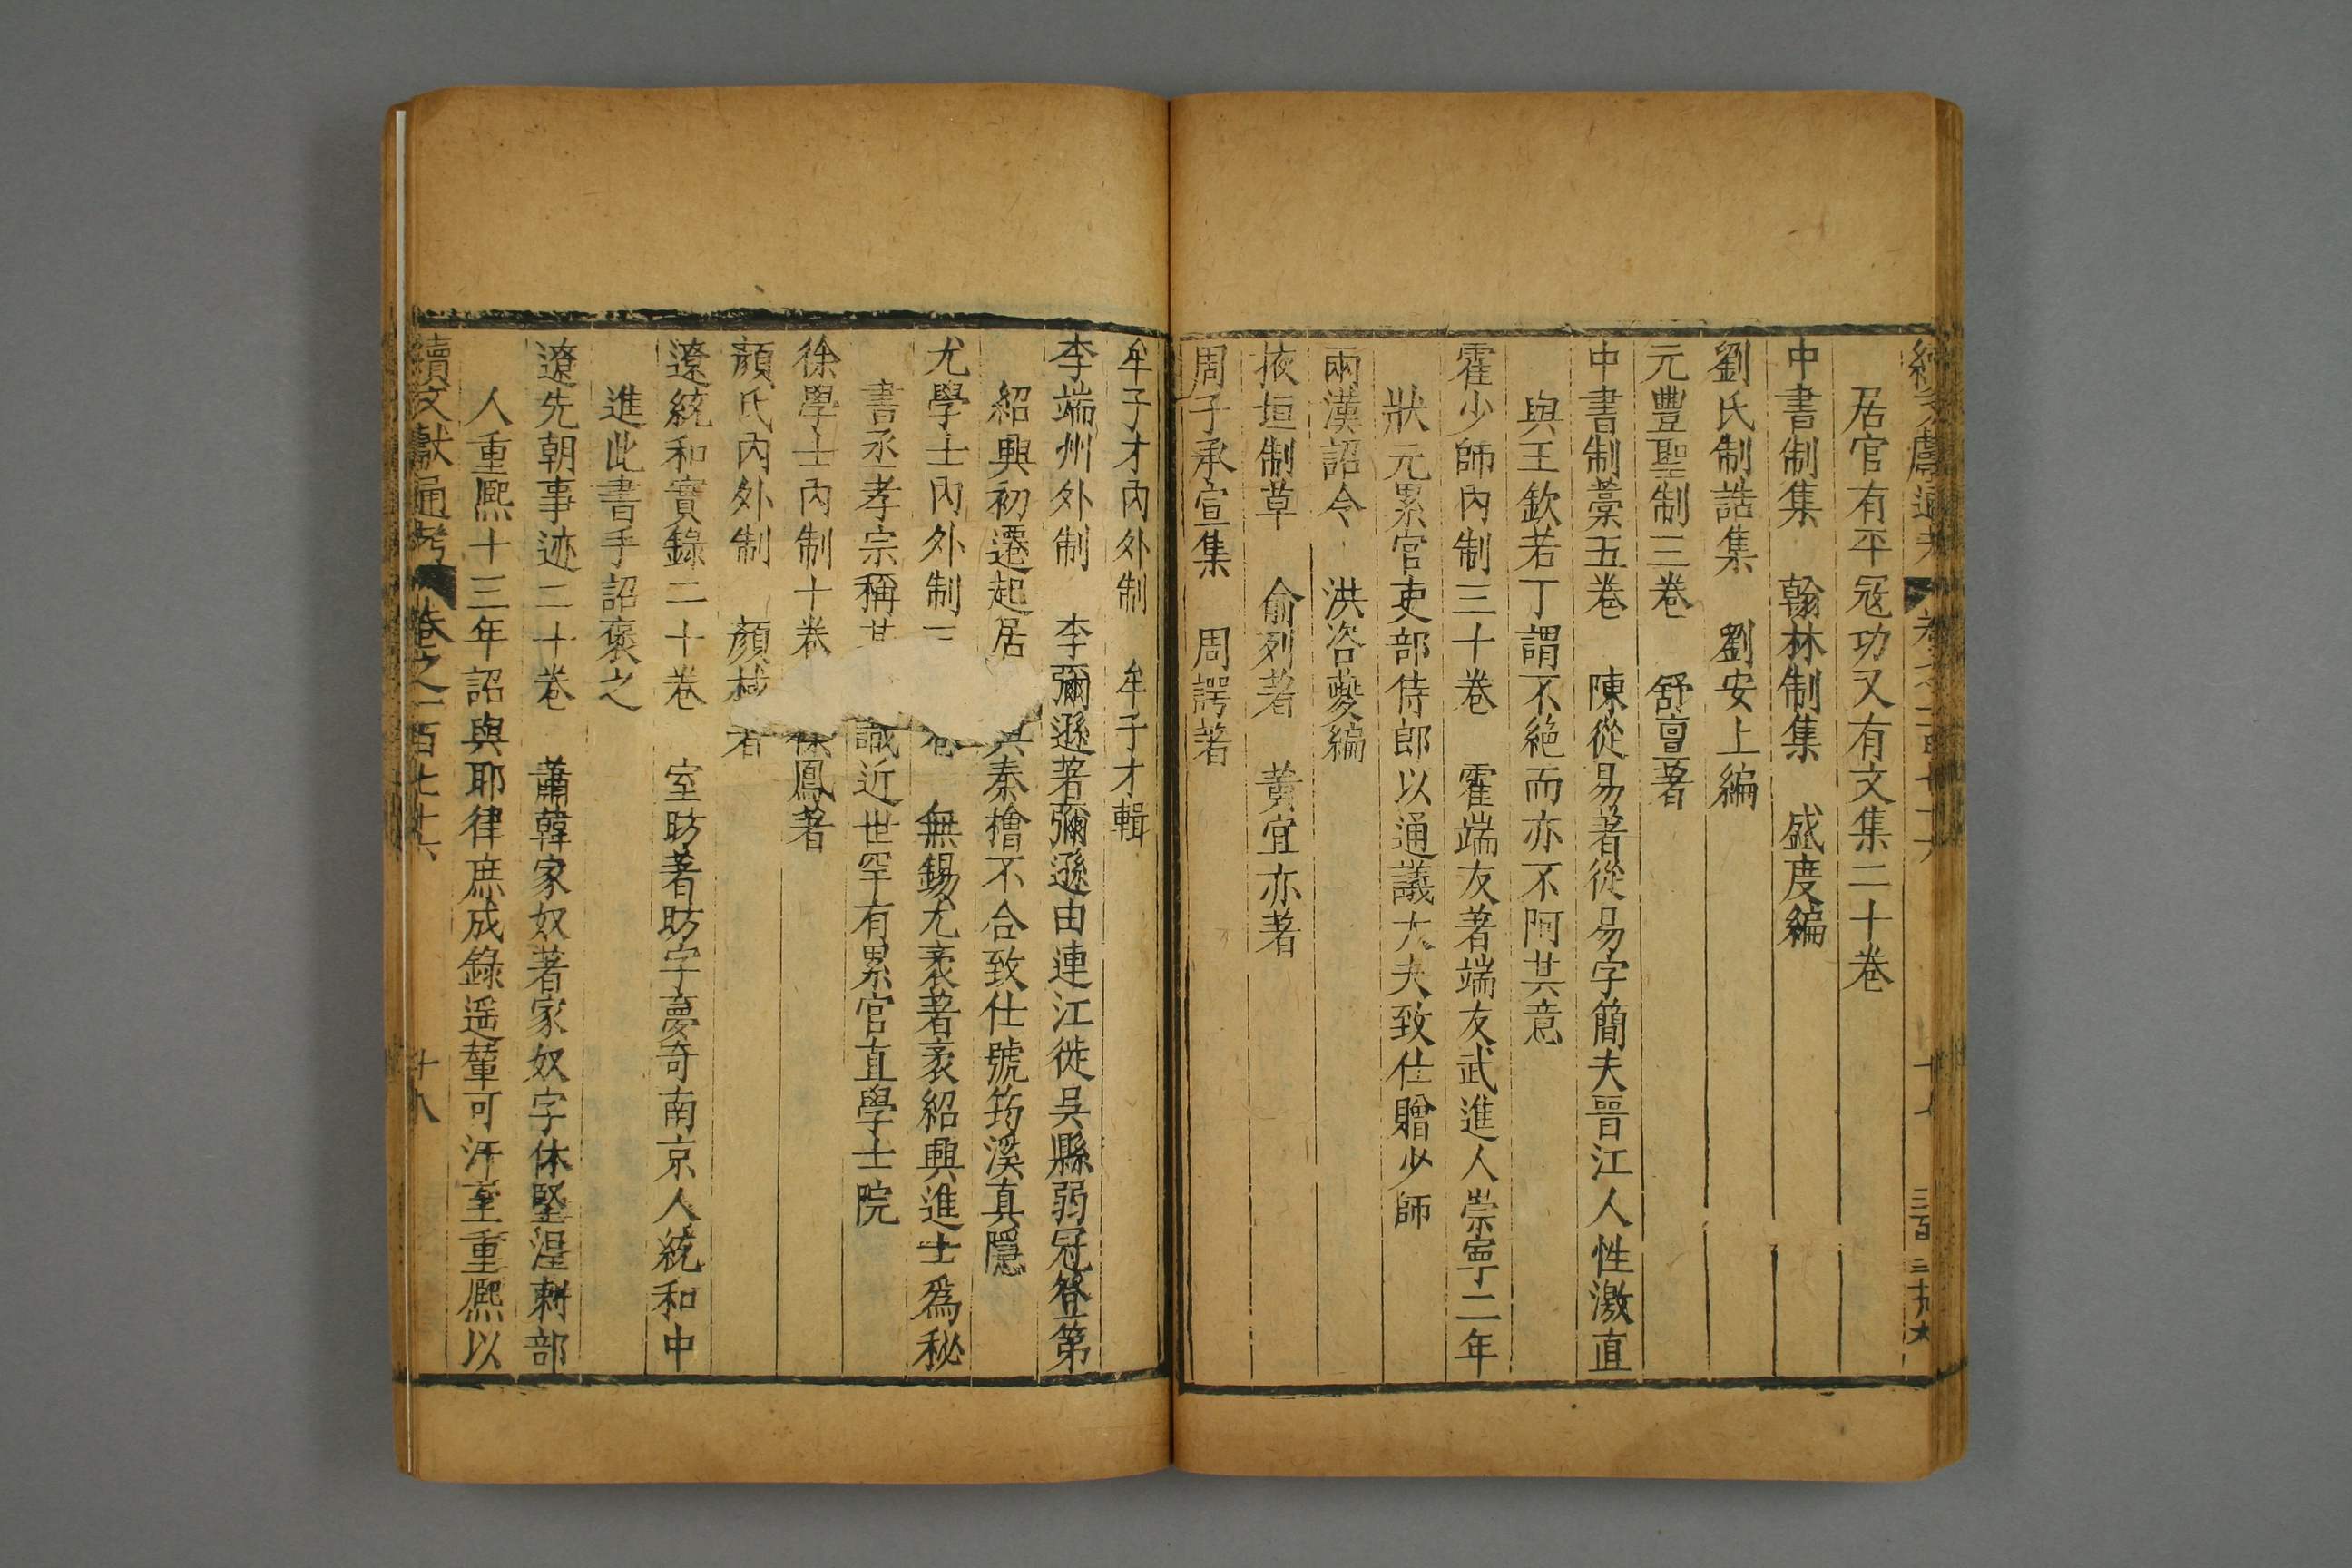 居官有平冦功又有文集二十卷
中書制集　翰林制集　盛度編
劉氏制誥集　劉安上編
元豐聖制三卷　舒亶著
中書制藁五卷　陳從易著從易字簡夫晉江人性激直
與王欽若丁謂不絶而亦不阿其意
霍少師內制三十卷　霍端友著端友武進人崇寧二年
狀元累官吏部侍郎以通議大夫致仕贈少師
兩漢詔令　洪咨夔編
掖垣制草　俞列著　黄宜亦著
周子承宣集　周諤著
牟子才內外制　牟子才輯
李端州外制　李彌遜著彌遜由連江徙吳縣弱冠登第
紹興初遷起居秦檜不合致仕號筠溪真隱
尤學士內外制　無錫尤袤著袤紹興進士爲秘
書丞孝宗稱其識近世罕有累官直學士院
徐學士內制十卷鳳著
顏氏內外制　顏棫著
遼統和實錄二十卷　室昉著昉字夢奇南京人統和中
進此書手詔褒之
遼先朝事迹二十卷　蕭韓家奴著家奴字休堅涅剌部
人重熙十三年詔與耶律庶成錄遥輦可汗至重熙以
續文獻通考　卷之一百七十六　十八